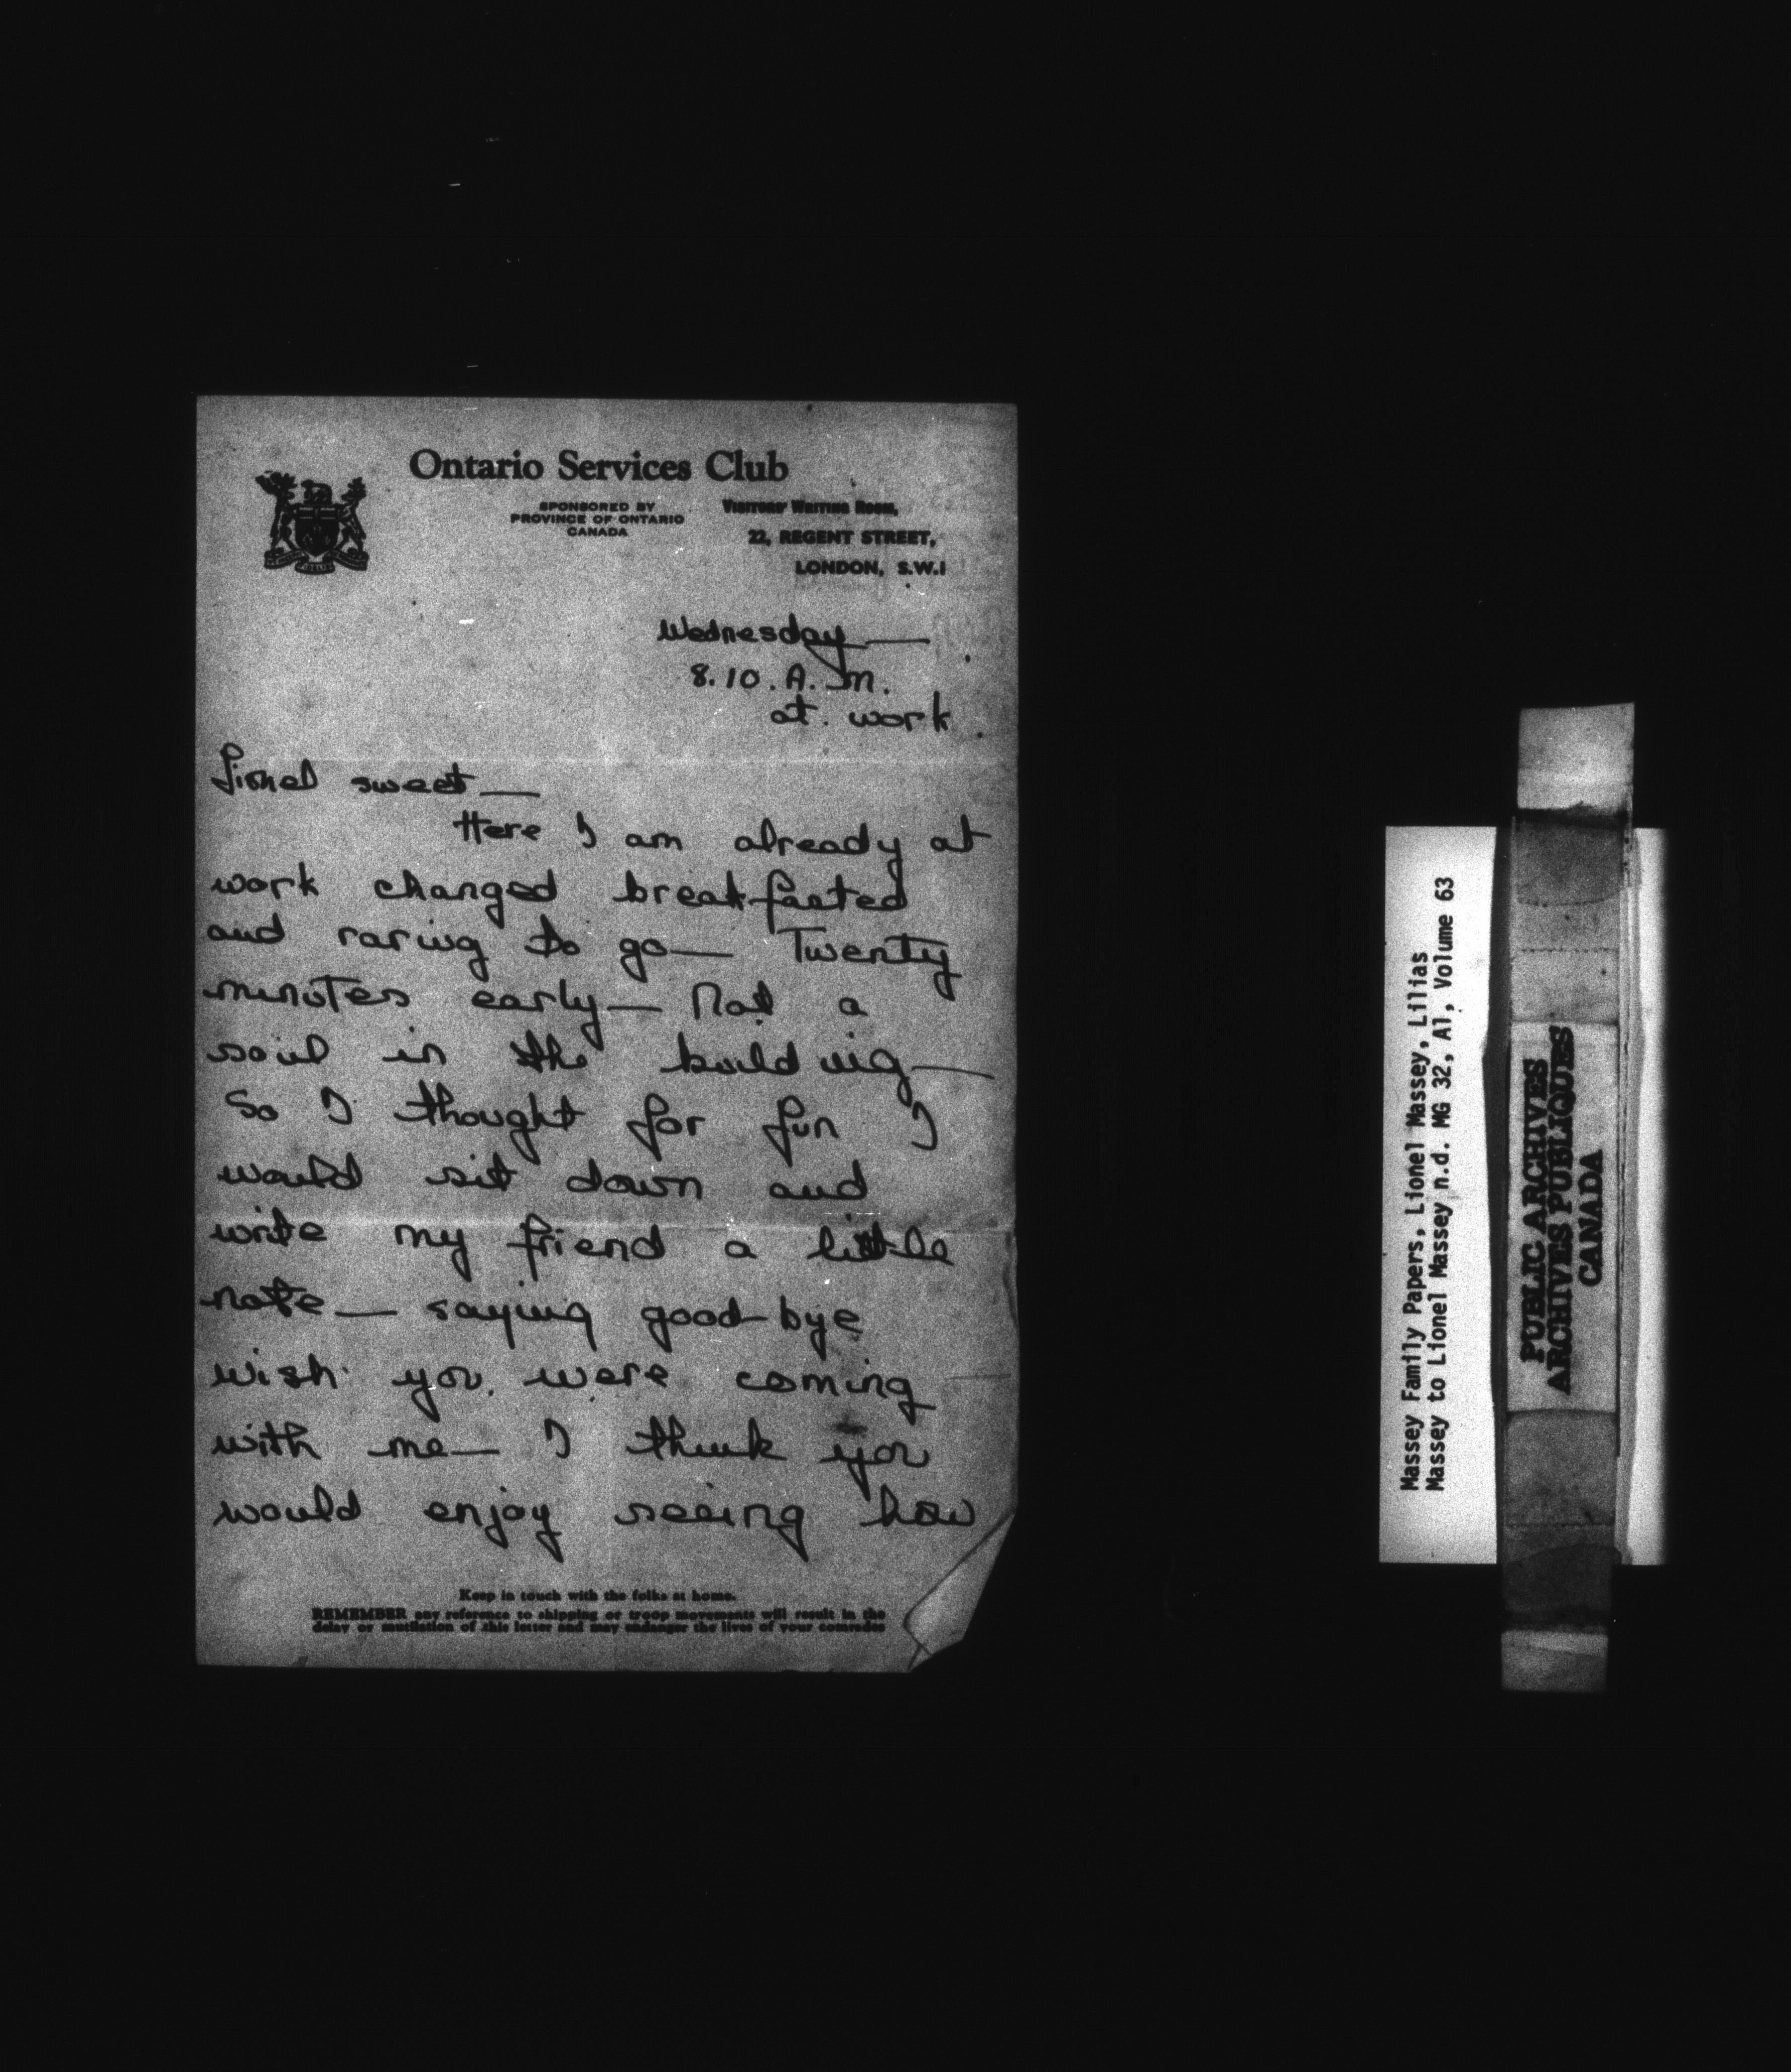 Ontario Services Club
SPONSORED BY
PROVINCE OF ONTARIO
CANADA
VISITORS' WRITING ROOM,
22, REGENT STREET,
LONDON, S.W.1
Wednesday —
8.10. A.M.
at work
Lionel sweet —
Here I am already at
work changed breakfasted
and raring to go — Twenty
minutes early — Not a
soul in the building —
So I thought for fun I
would sit down and
write my friend a little
note — saying good-bye
wish you were coming
with me — I think you
would enjoy seeing how
Keep in touch with the folks at home.
REMEMBER any reference to shipping or troop movements will result in the
delay or mutilation of this letter and may endanger the lives of your comrades
Massey Family Papers, Lionel Massey, Lilias
Massey to Lionel Massey n.d. MG 32, A1, Volume 63
PUBLIC ARCHIVES
ARCHIVES PUBLIQUES
CANADA